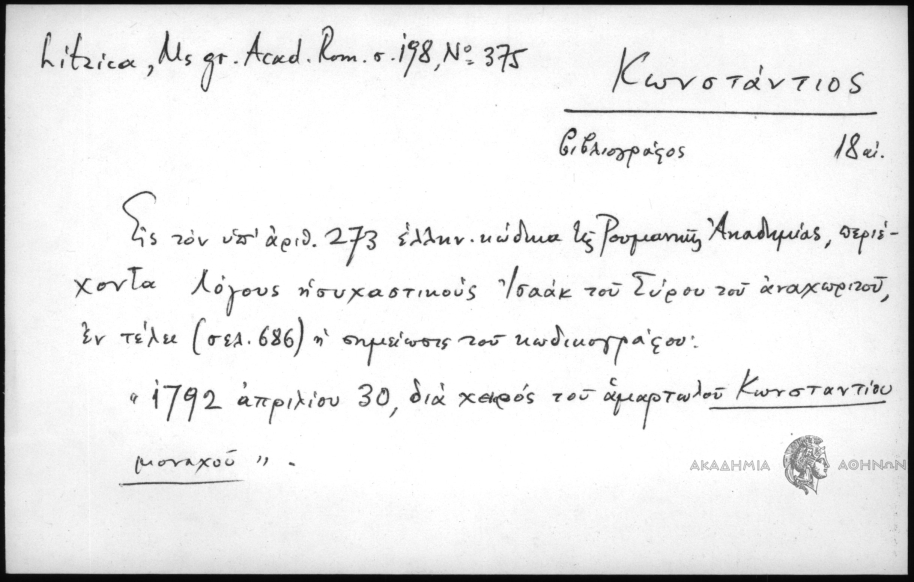 Litzica, Ms gr. Acad. Rom. σ. 198, Nº 375
Κωνστάντιος
βιβλιογράφος 18 αἰ.
Εἰς τὸν ὑπ' ἀριθ. 273 ἑλλην. κώδικα τῆς Ρουμανικῆς Ἀκαδημίας, περιέ-
χοντα Λόγους ἡσυχαστικοὺς Ἰσαάκ τοῦ Σύρου τοῦ ἀναχωριτοῦ,
ἐν τέλει (σελ. 686) ἡ σημείωσις τοῦ κωδικογράφου:
"1792 ἀπριλίου 30, διὰ χειρός τοῦ ἁμαρτωλοῦ Κωνσταντίου
μοναχοῦ".
ΑΚΑΔΗΜΙΑ ΑΘΗΝΩΝ